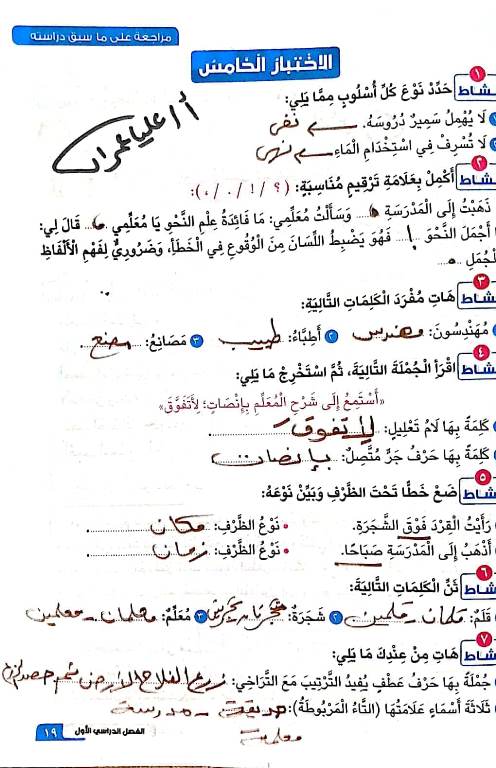 مراجعة على ما سبق دراسته
الاخْتبَارُ الْخَامسُ
أ/ علياء عمران
١ نشاط حَدِّدْ نَوْعَ كُلِّ أُسْلُوبٍ مِمَّا يَلِي:
لَا يُهْمِلُ سَمِيرٌ دُرُوسَهُ. نفى
لَا تُسْرِفْ فِي اسْتِخْدَامِ الْمَاءِ نهى
٢ نشاط أَكْمِلْ بِعَلَامَةِ تَرْقِيمٍ مُنَاسِبَةٍ: (؟ / ! / . / ،):
ذَهَبْتُ إِلَى الْمَدْرَسَةِ ..... وَسَأَلْتُ مُعَلِّمِي: مَا فَائِدَةُ عِلْمِ النَّحْوِ يَا مُعَلِّمِي ..... قَالَ لِي:
أَجْمَلَ النَّحْوَ ..!.. فَهُوَ يَضْبِطُ اللِّسَانَ مِنَ الْوُقُوعِ فِي الْخَطَأِ، وَضَرُورِيٌّ لِفَهْمِ الْأَلْفَاظِ
الْجُمَلِ .....
٣ نشاط هَاتِ مُفْرَدَ الْكَلِمَاتِ التَّالِيَةِ:
مُهَنْدِسُونَ: مهندس ٢ أَطِبَّاءُ: طبيب ٣ مَصَانِعُ: مصنع
٤ نشاط اقْرَأِ الْجُمْلَةَ التَّالِيَةَ، ثُمَّ اسْتَخْرِجْ مَا يَلِي:
«أَسْتَمِعُ إِلَى شَرْحِ الْمُعَلِّمِ بِإِنْصَاتٍ؛ لِأَتَفَوَّقَ»
كَلِمَةً بِهَا لَامُ تَعْلِيلٍ: لأتفوق
كَلِمَةً بِهَا حَرْفُ جَرٍّ مُتَّصِلٌ: بإنصات
٥ نشاط ضَعْ خَطًّا تَحْتَ الظَّرْفِ وَبَيِّنْ نَوْعَهُ:
رَأَيْتُ الْقِرْدَ فَوْقَ الشَّجَرَةِ. • نَوْعُ الظَّرْفِ: مكان
أَذْهَبُ إِلَى الْمَدْرَسَةِ صَبَاحًا. • نَوْعُ الظَّرْفِ: زمان
٦ نشاط ثَنِّ الْكَلِمَاتِ التَّالِيَةَ:
قَلَمٌ: قلمان - قلمين ٢ شَجَرَةٌ: شجرتان - شجرتين ٣ مُعَلِّمٌ: معلمان - معلمين
٧ نشاط هَاتِ مِنْ عِنْدِكَ مَا يَلِي:
جُمْلَةً بِهَا حَرْفُ عَطْفٍ يُفِيدُ التَّرْتِيبَ مَعَ التَّرَاخِي: زرع الفلاح الأرض ثم حصد
ثَلَاثَةَ أَسْمَاءٍ عَلَامَتُهَا (التَّاءُ الْمَرْبُوطَةُ): حديقة - مدرسة
معلمة
الفصل الدراسي الأول ١٩